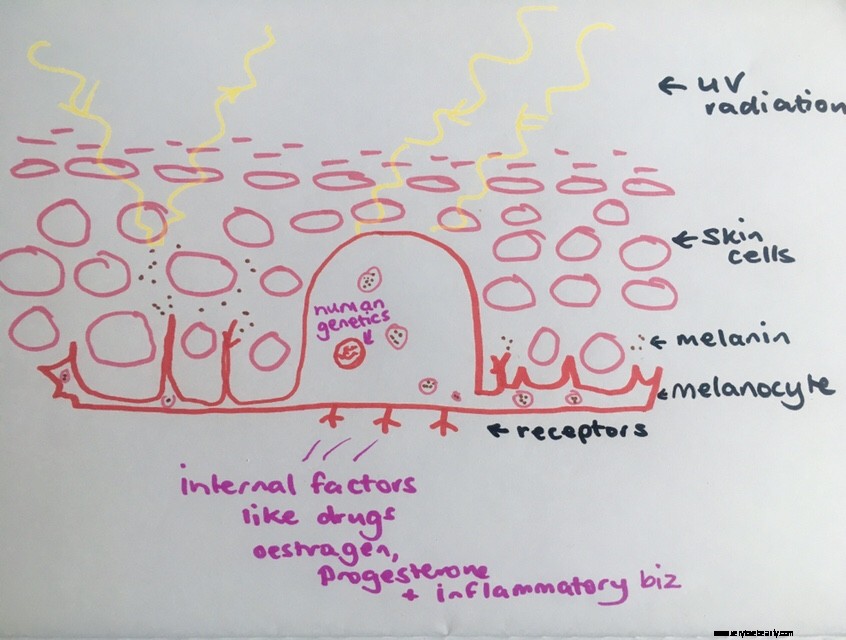 ← UV
radiation
← Skin
cells
human
genetics
← melanin
← melanocyte
← receptors
internal factors
like drugs
oestragen,
progesterone
+ inflammatory biz